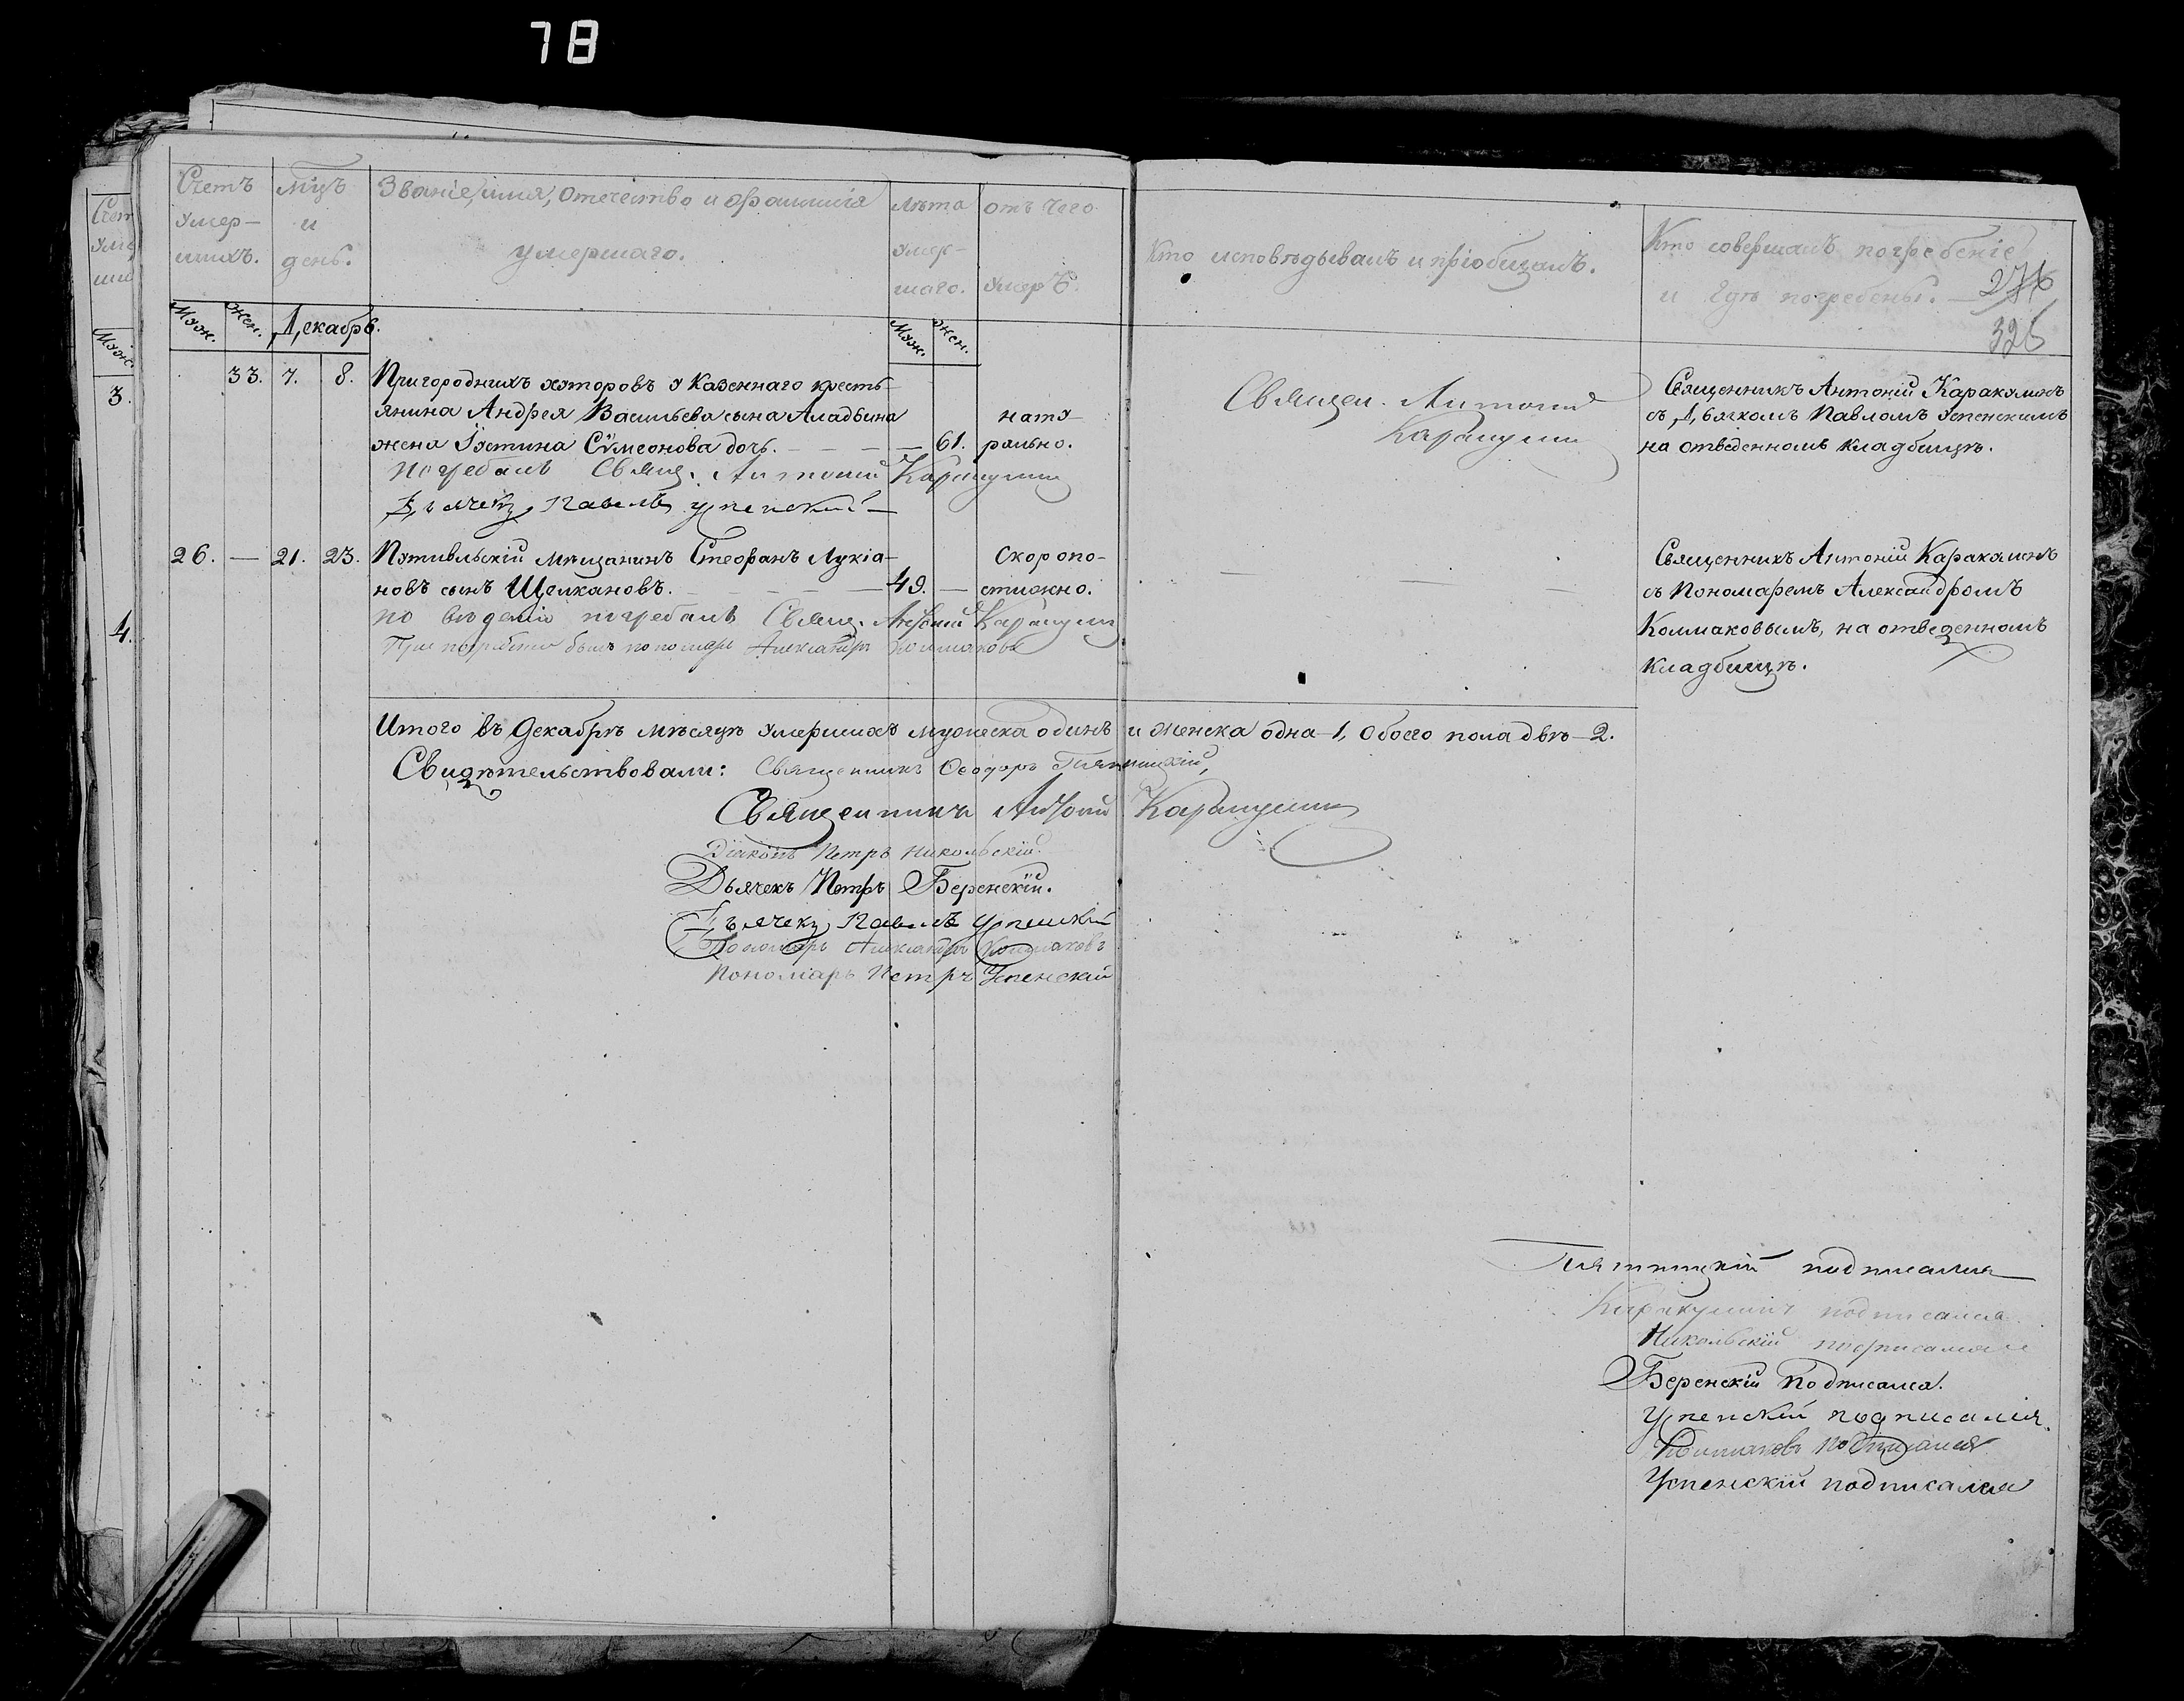 78
Счетъ
умер-
шихъ.
мцъ
и
день.
Званіе, имя, отечество и фамилія
умершаго.
Лѣта
умер-
шаго.
отъ чего
умеръ.
Кто исповѣдывалъ и пріобщалъ.
Кто совершалъ погребеніе
и гдѣ погребены.
276
326
Муж.
Жен.
Декабрь.
Муж.
Жен.
33. 7. 8. Пригороднихъ хуторовъ у Казеннаго кресть-
янина Андрея Васильева сына Аладьина
жена Іустина Сѵмеонова дочь. — — — — 61.
нату-
рально.
Погребалъ Свящ. Антоній Каракулинъ
Дьячекъ Павелъ Успенскій
Священ. Антоній
Каракулинъ
Священникъ Антоній Каракулинъ
съ Дьячкомъ Павломъ Успенскимъ
на отведенномъ кладбищѣ.
26. — 21. 23. Путивльскій мѣщанинъ Стефанъ Лукіа-
новъ сынъ Щелкановъ. — — — — 49. —
Скоропо-
стижно.
погребалъ Свящ. Антоній Каракулинъ
При погребеніи былъ пономарь Александръ Колмаковъ
Священникъ Антоній Каракулинъ
съ Пономаремъ Александромъ
Колмаковымъ, на отведенномъ
кладбищѣ.
3.
4.
Итого въ Декабрѣ мѣсяцѣ умершихъ мужеска одинъ и женска одна 1, обоего пола двѣ — 2.
Свидѣтельствовали: Священникъ Ѳеодоръ Пятницкій,
Священникъ Антоній Каракулинъ
Діаконъ Петръ Никольскій.
Дьячекъ Петръ Беренскій.
Дьячекъ Павелъ Успенскій
Пономарь Александръ Колмаковъ
Пономарь Петръ Успенскій
Пятницкій подписался
Каракулинъ подписался.
Никольскій подписался
Беренскій подписался.
Успенскій подписался.
Колмаковъ подписался
Успенскій подписался